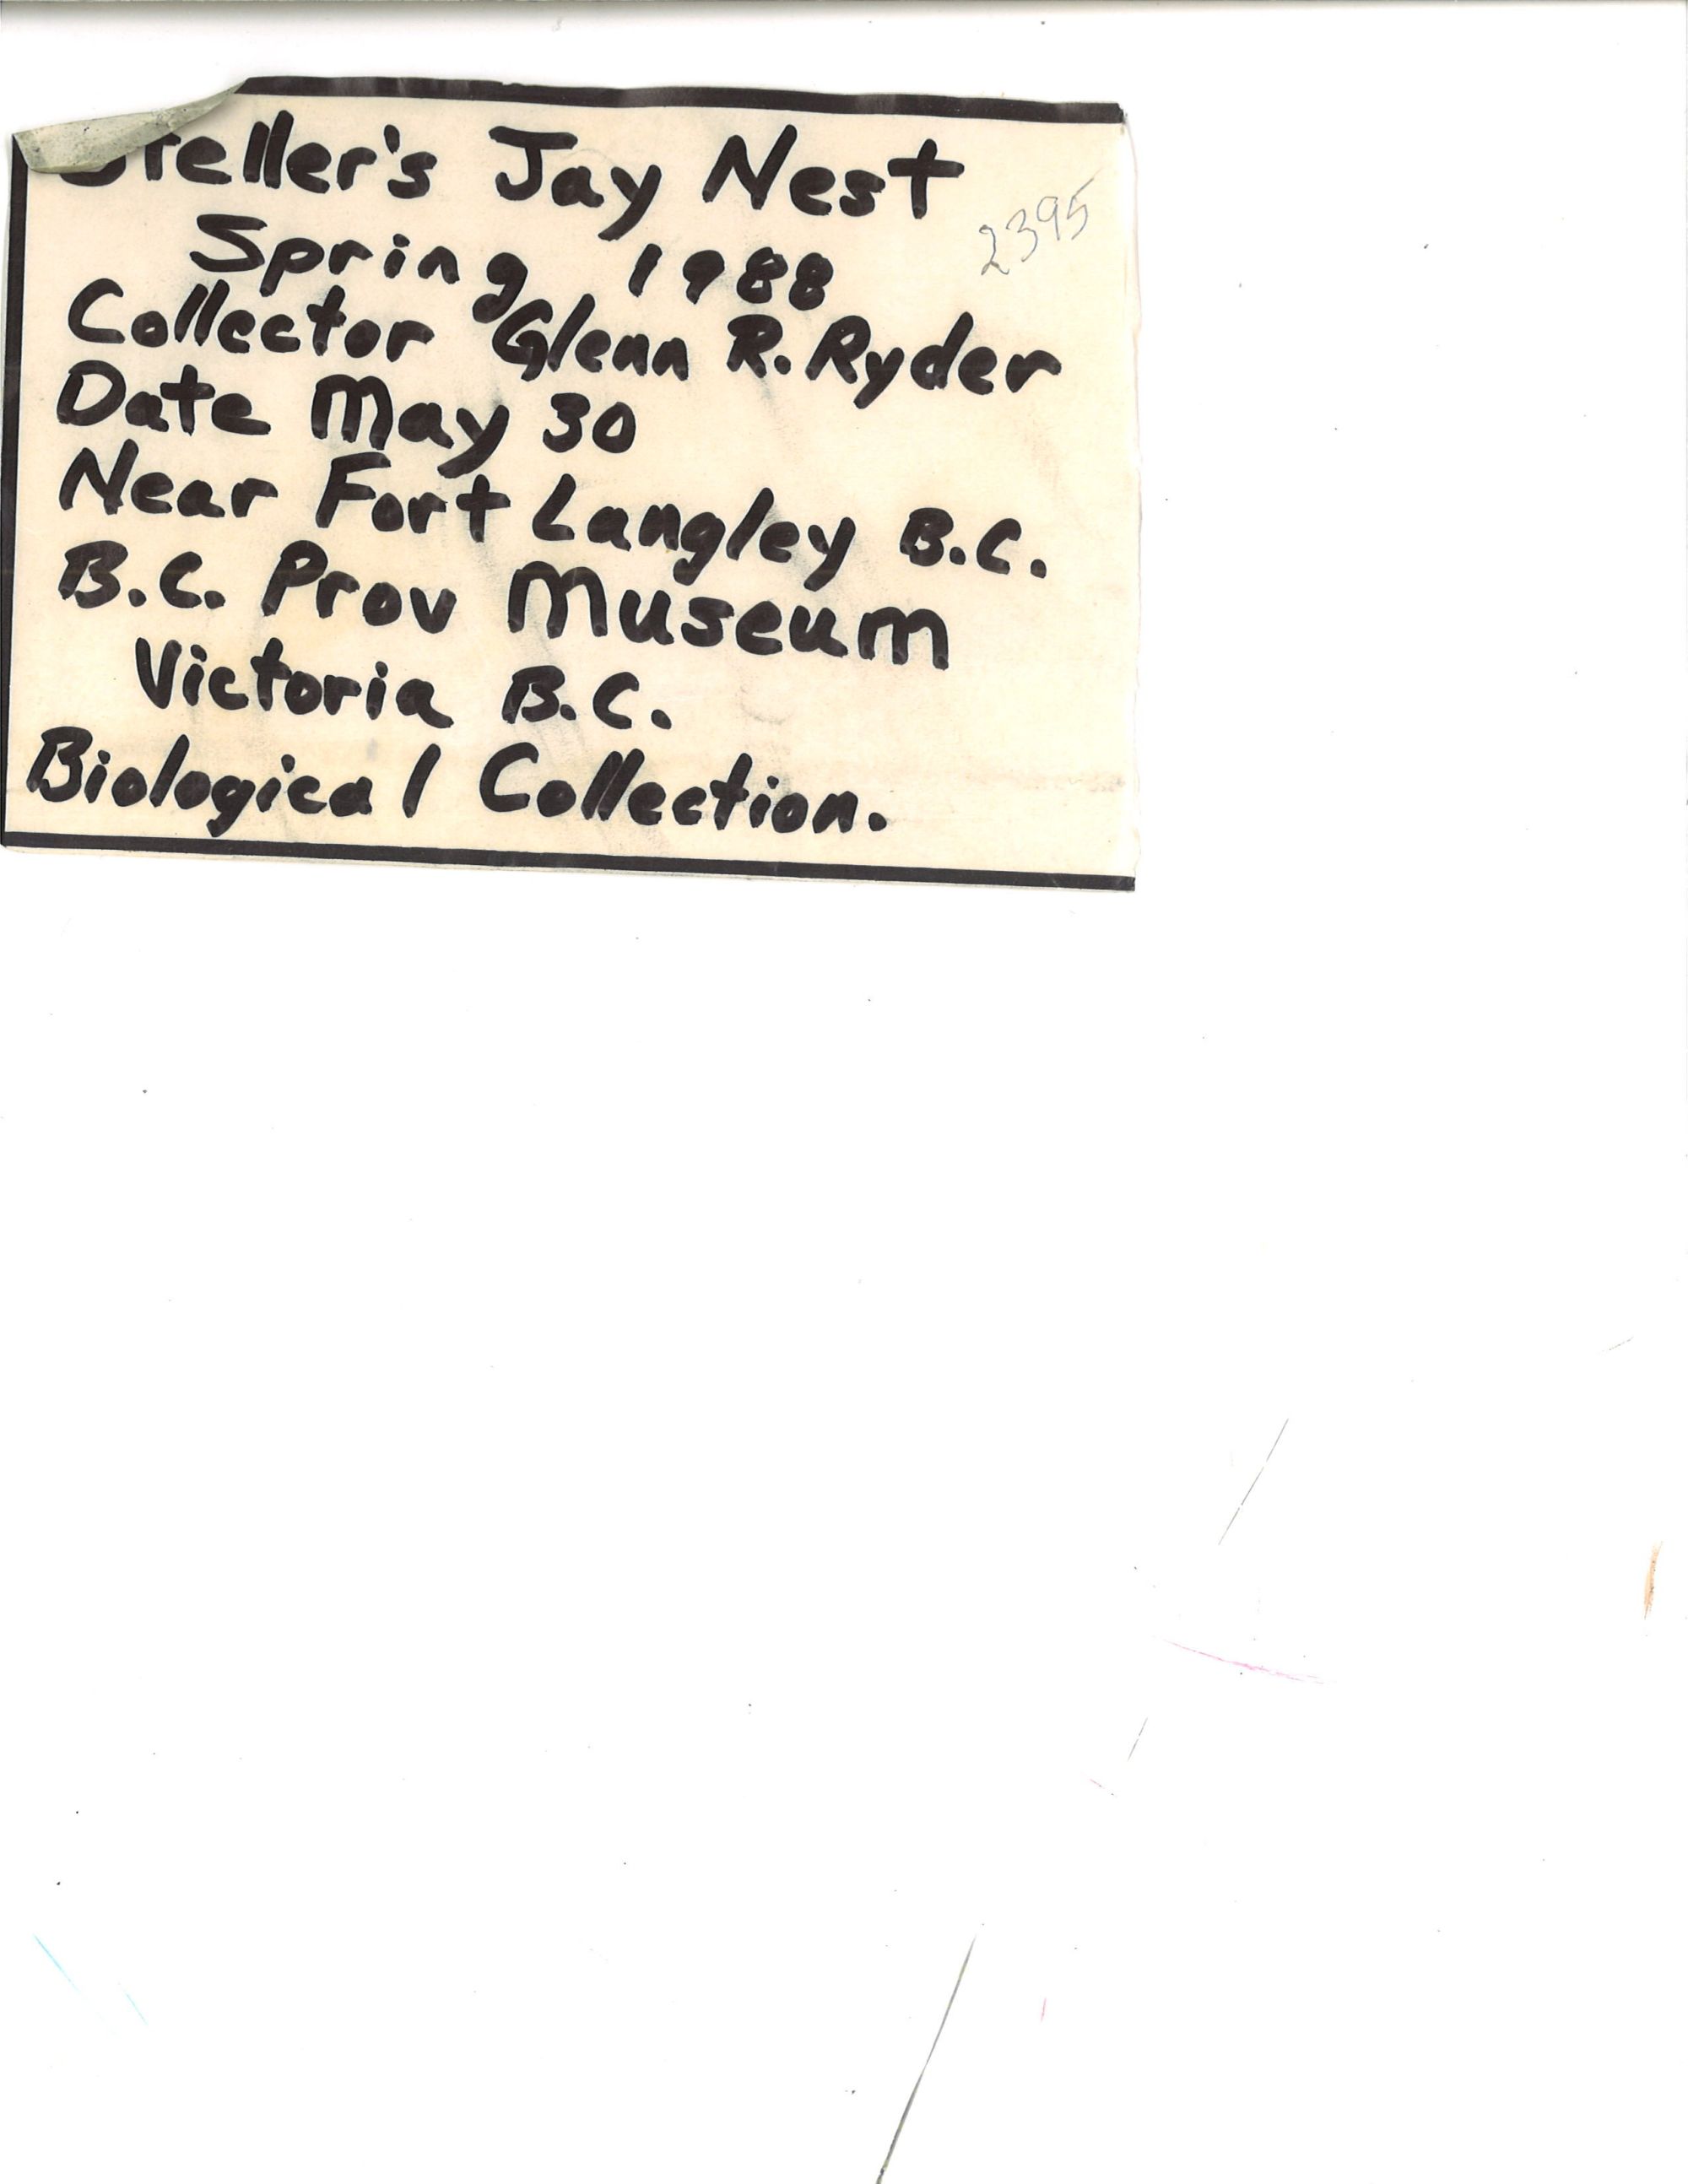 Steller's Jay Nest
2395
Spring 1988
Collector Glenn R. Ryder
Date May 30
Near Fort Langley B.C.
B.C. Prov Museum
Victoria B.C.
Biological Collection.